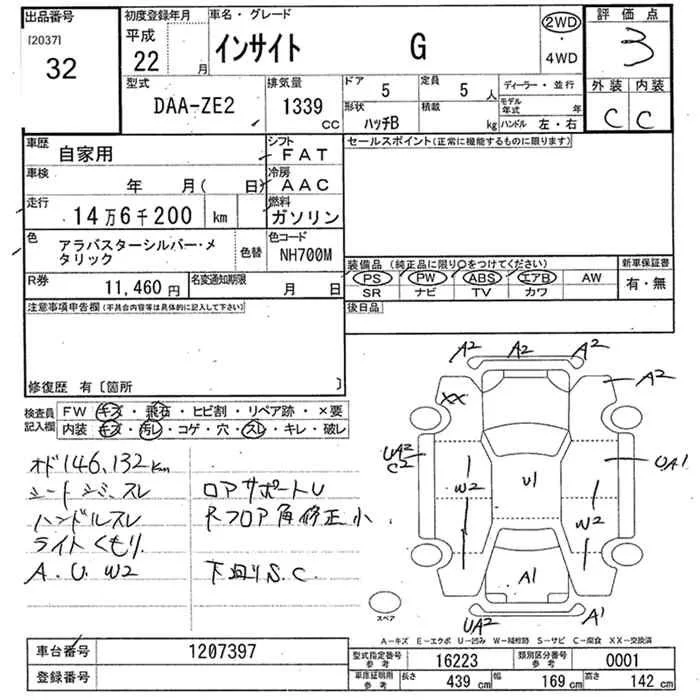 出品番号 初度登録年月 車名・グレード 2WD ・ 4WD 評価点
[2037] 平成
32 22 月 インサイト G 3
型式 排気量 ドア 5 定員 5 人 ディーラー・並行 外装 内装
DAA-ZE2 1339 CC 形状 ハッチB 積載 kg モデル年式 年 C C
ハンドル 左・右
車歴 自家用 シフト FAT セールスポイント(正常に機能するものに限ります)
車検 年 月( 日) 冷房 AAC
走行 14万6千200 km 燃料 ガソリン
色 アラバスターシルバー・メ 色替 色コード NH700M
タリック
装備品 (純正品に限り○をつけてください) 新車保証書
PS PW ABS エアB AW 有・無
SR ナビ TV カワ
R券 11,460円 名変通知期限 月 日
注意事項申告欄(不具合内容等は具体的に記入して下さい) 後日品
修復歴 有〔箇所 〕
検査員 FW キズ・飛石・ヒビ割・リペア跡・×要
記入欄 内装 キズ・汚レ・コゲ・穴・スレ・キレ・破レ
オド146,132km
シートシミ、スレ ロアサポートU
ハンドルスレ Rフロア角修正小
ライトくもり
A.U.W2 下回りS.C.
A2 A2 A2
XX A2
UA2
C2 W2 U1 W2 UA1
A1
スペア UA2 A1
A-キズ E-エクボ U-凹み W-補修跡 S-サビ C-腐食 XX-交換済
車台番号 1207397 型式指定番号 参考 16223 類別区分番号 参考 0001
登録番号 車庫証明用 参考 長さ 439 cm 幅 169 cm 高さ 142 cm